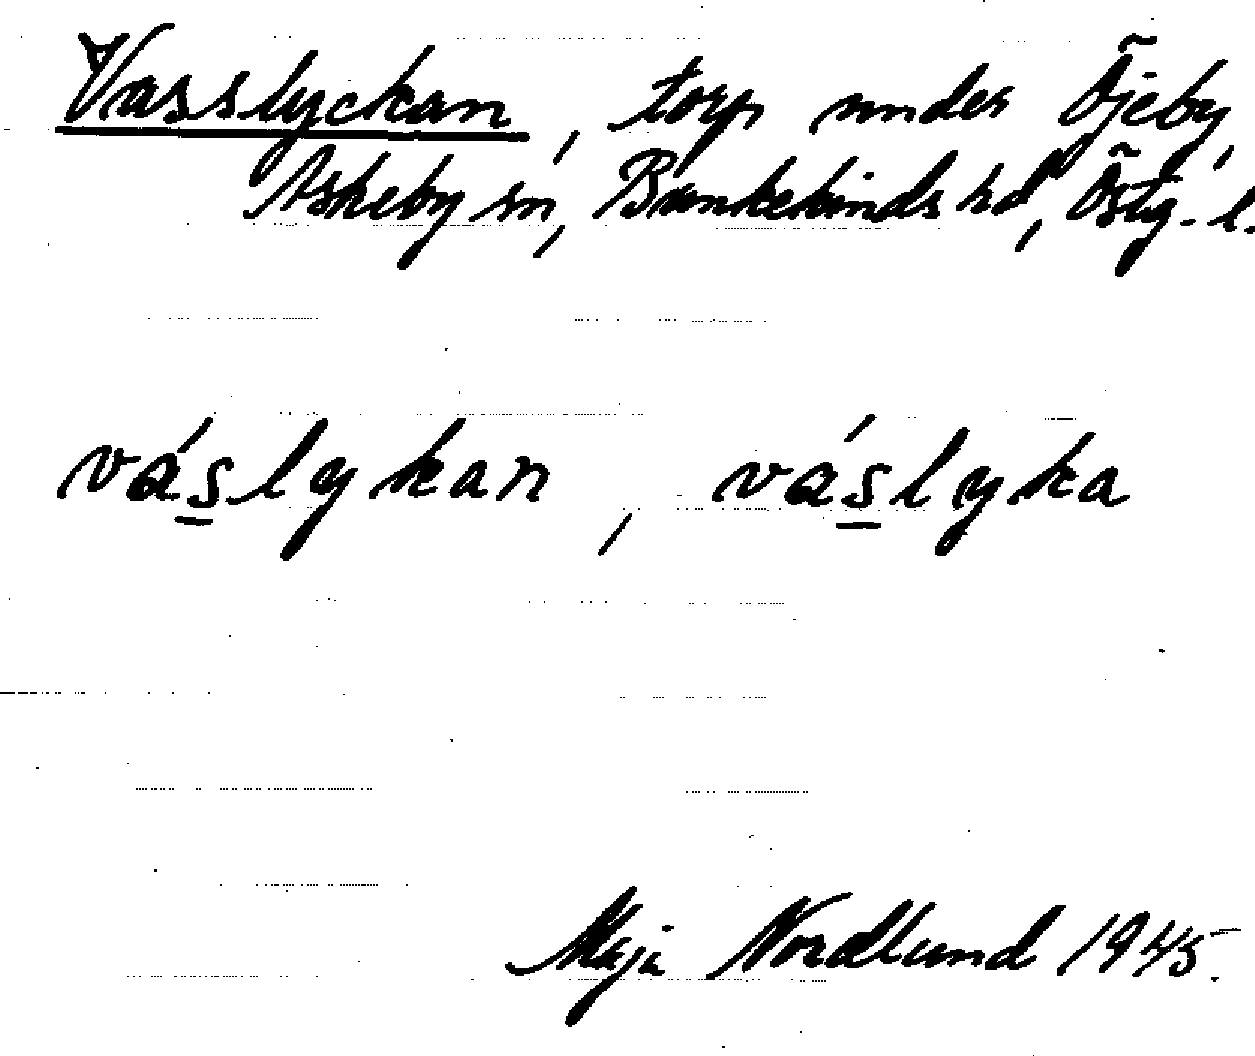 Vasslyckan, torp under Öjeby,
Askeby sn, Bankekinds hd, Östg. l.
váslykan, váslyka
Maja Nordlund 1945.